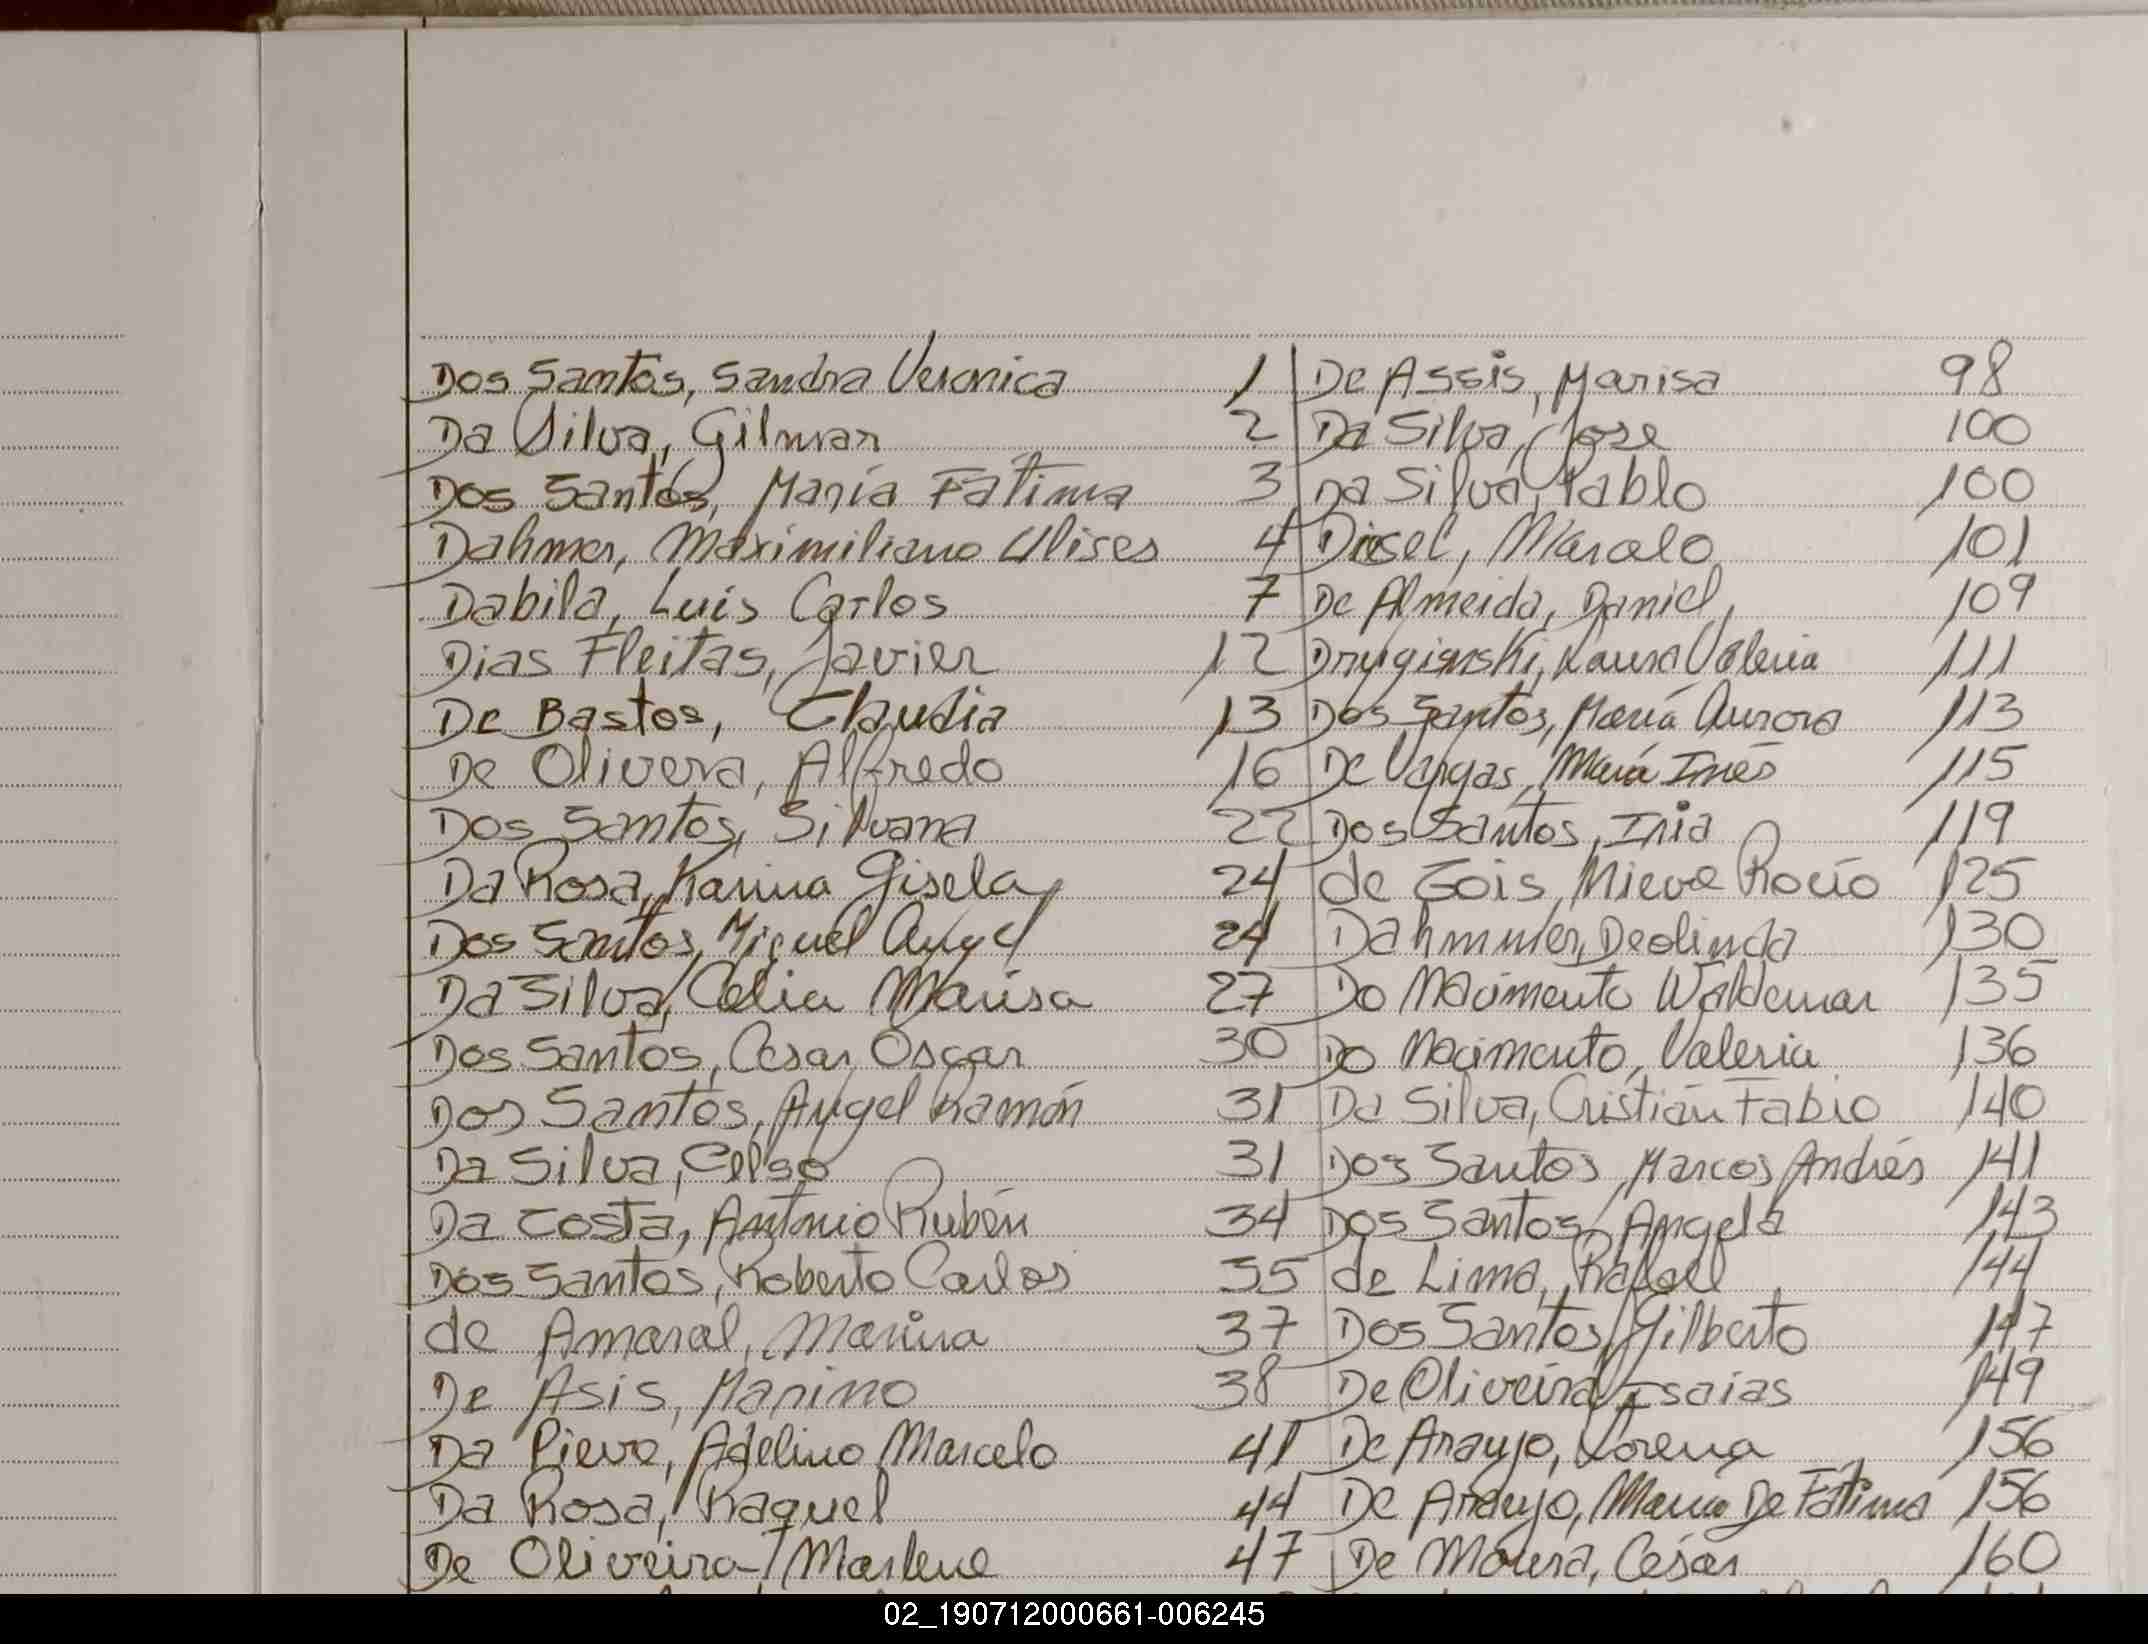 Dos Santos, Sandra Veronica 1
Da Silva, Gilmar 2
Dos Santos, María Fátima 3
Dahmer, Maximiliano Ulises 4
Dabila, Luis Carlos 7
Dias Fleitas, Javier 12
De Bastos, Claudia 13
De Olivera, Alfredo 16
Dos Santos, Silvana 22
Da Rosa, Karina Gisela 24
Dos Santos, Miguel Angel 24
Da Silva, Celia Marisa 27
Dos Santos, Cesar Oscar 30
Dos Santos, Angel Ramón 31
Da Silva, Celso 31
Da Costa, Antonio Rubén 34
Dos Santos, Roberto Carlos 35
de Amaral, Marina 37
De Asis, Marino 38
Da Pieve, Adelino Marcelo 41
Da Rosa, Raquel 44
De Oliveira, Marlene 47
De Assis, Marisa 98
Da Silva, Jose 100
Da Silva, Pablo 100
Diesel, Marcelo 101
De Almeida, Daniel 109
Drygienski, Laura Valeria 111
Dos Santos, María Aurora 113
De Vargas, María Inés 115
Dos Santos, Iria 119
de Gois, Nieve Rocío 125
Dahmmer, Deolinda 130
Do Nacimento Waldemar 135
Do Nacimento, Valeria 136
Da Silva, Cristian Fabio 140
Dos Santos, Marcos Andrés 141
Dos Santos, Angela 143
de Lima, Rafael 144
Dos Santos, Gilberto 147
De Oliveira, Isaias 149
De Araujo, Lorena 156
De Araujo, Maria De Fátima 156
De Moura, César 160
02_190712000661-006245